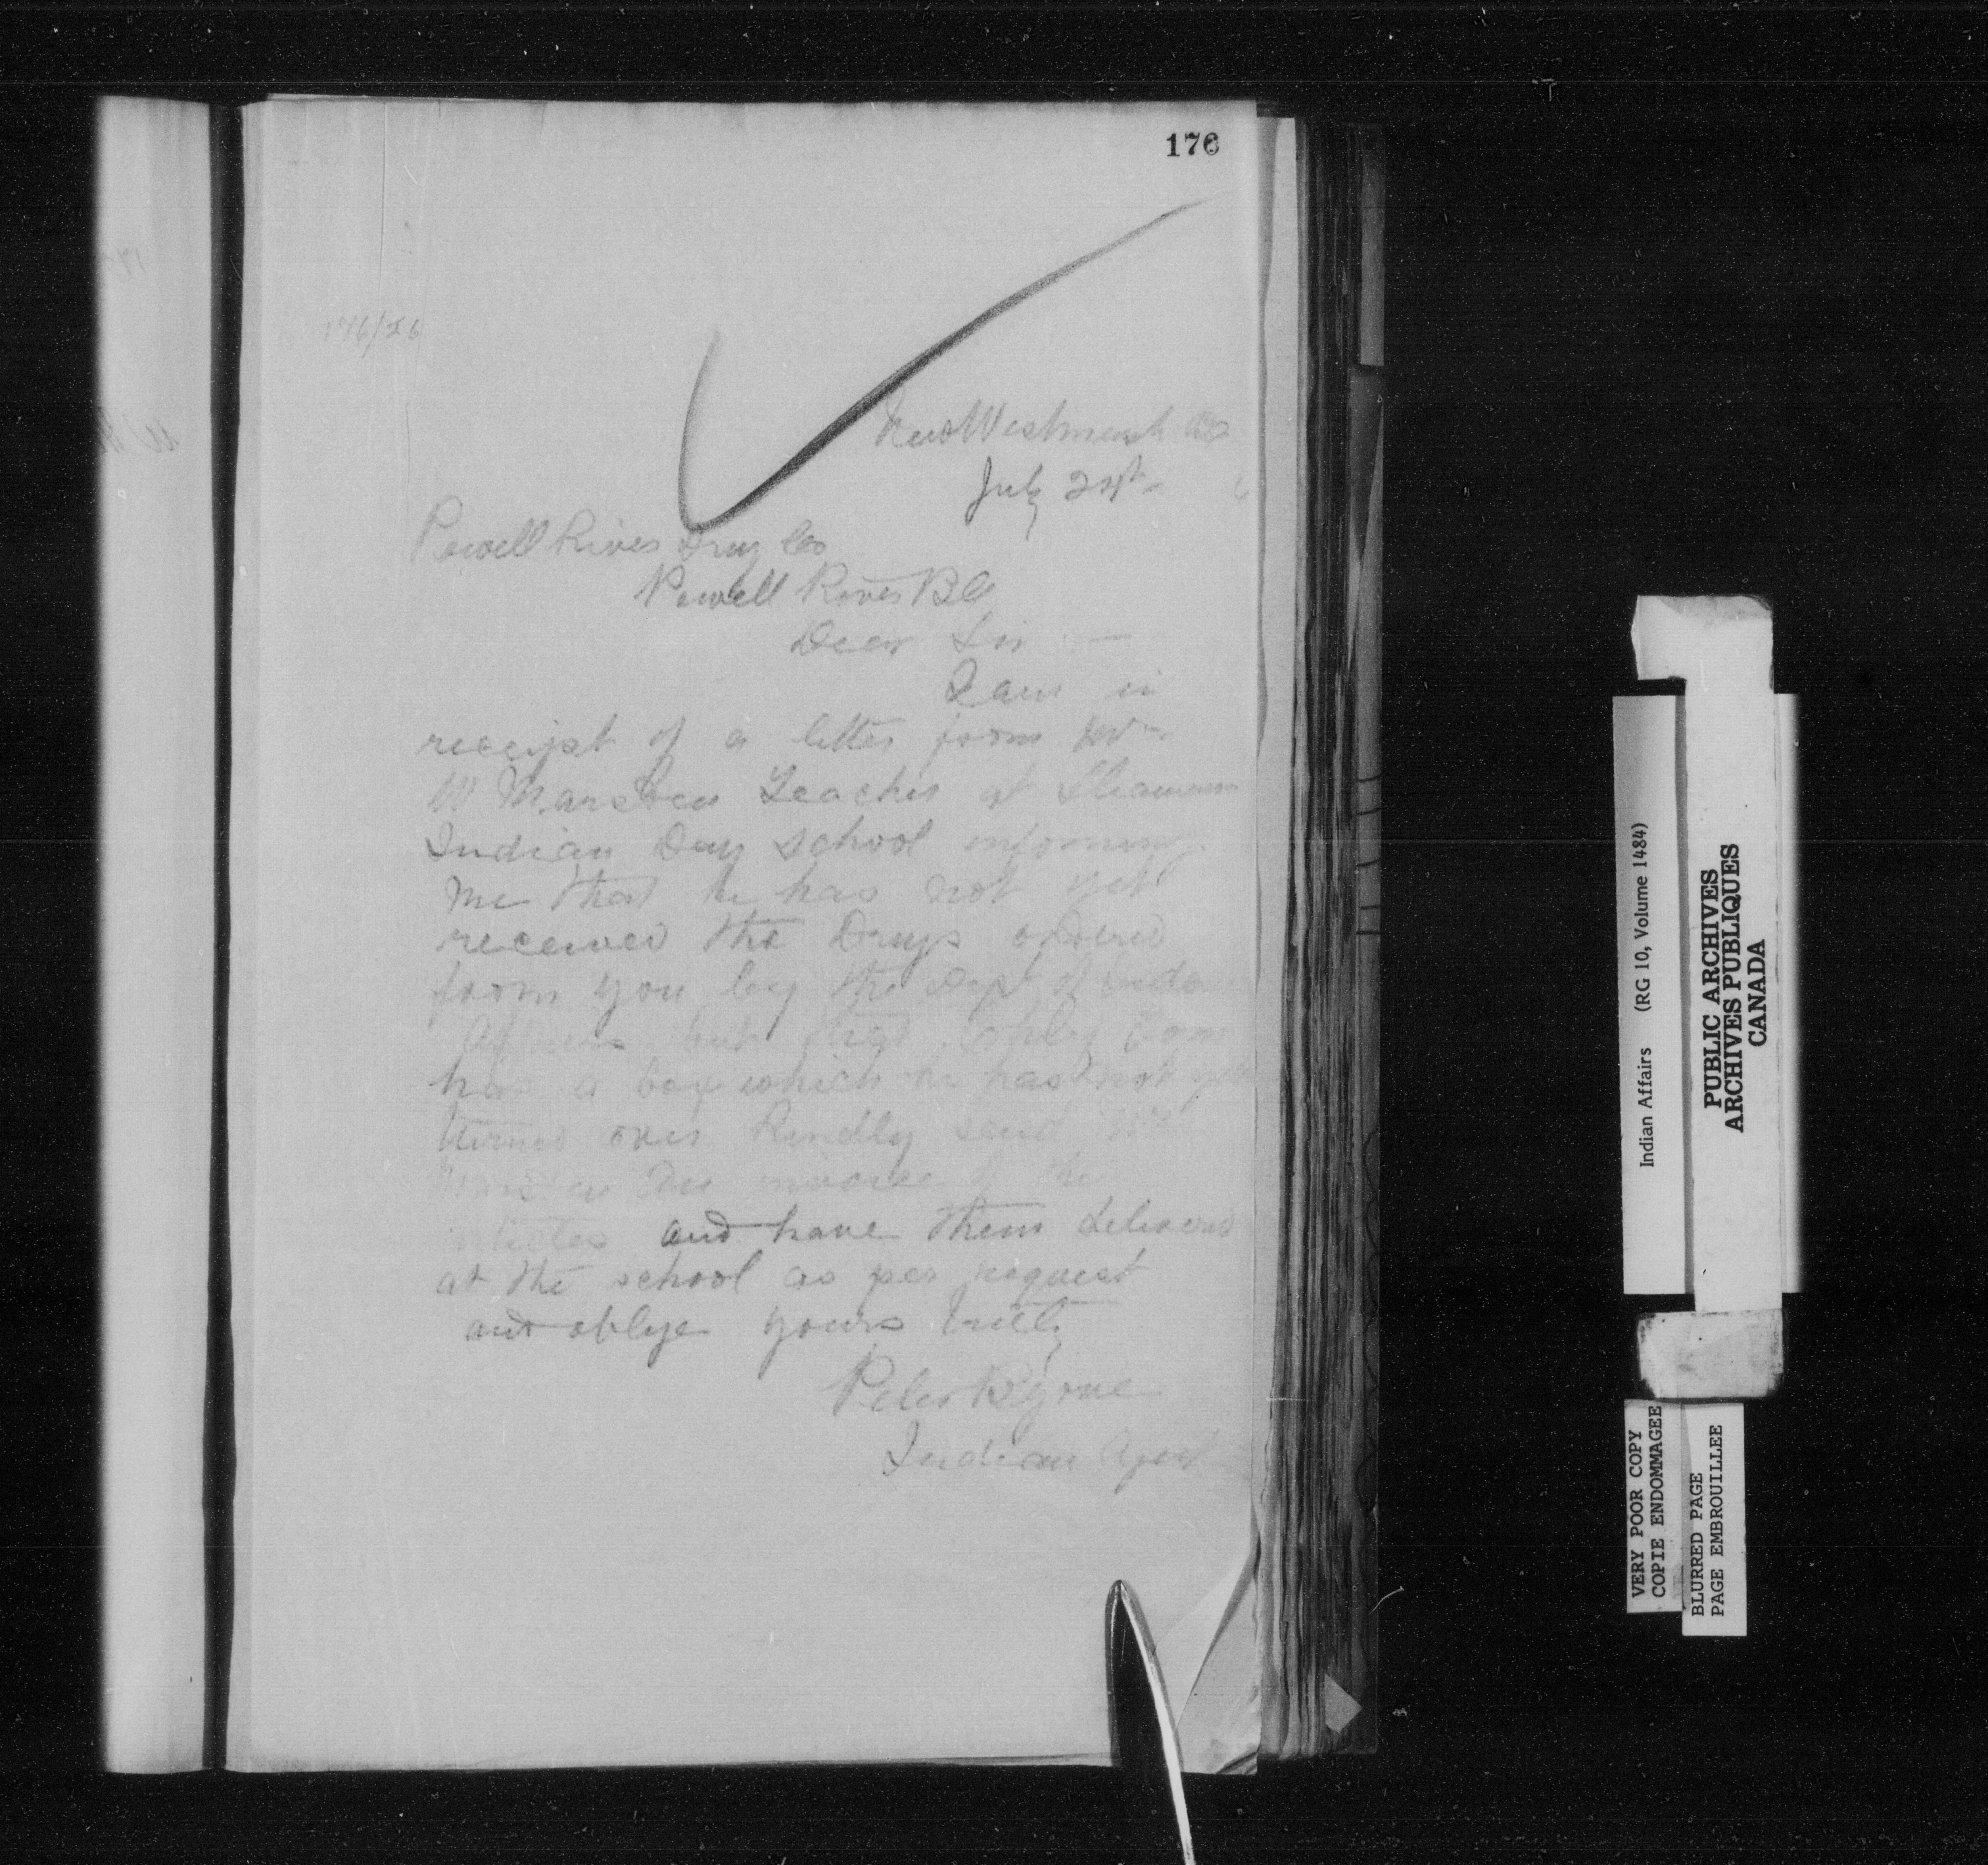 176
176/26
New Westminst BC
July 21st
Powell River Drug Co
Powell River BC
Dear Sir —
I am in
receipt of a letter from Mr
W Marsden Teacher at Sliammon
Indian Day School informing
me that he has not yet
received the Drugs ordered
from you by the Dept of Indian
Affairs but that Chief Tom
has a box which he has not yet
turned over Kindly send Mr
Marsden an invoice of the
and have them delivered
at the school as per request
and oblige yours truly
Peter Byrne
Indian Agent
Indian Affairs (RG 10, Volume 1484)
PUBLIC ARCHIVES
ARCHIVES PUBLIQUES
CANADA
VERY POOR COPY
COPIE ENDOMMAGEE
BLURRED PAGE
PAGE EMBROUILLEE